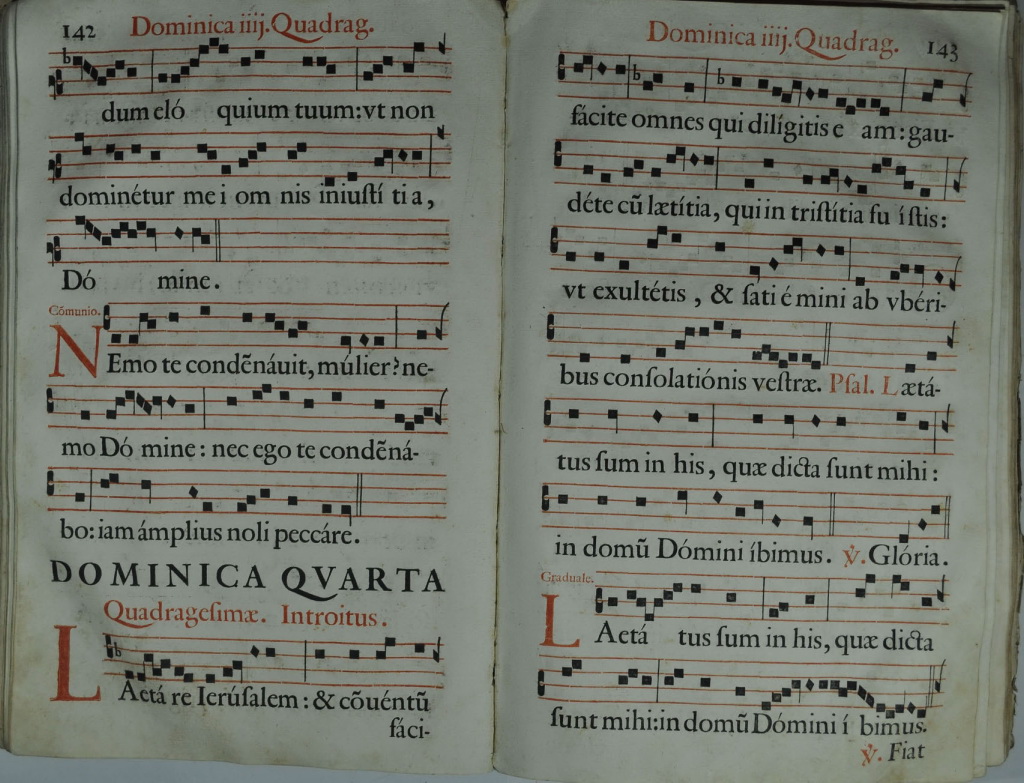 142 Dominica iiij. Quadrag.
dum eló quium tuum: vt non
dominétur me i om nis iniustí ti a,
Dó mine.
Cõmunio.
NEmo te condẽnáuit, múlier? ne-
mo Dó mine: nec ego te condẽná-
bo: iam ámplius noli peccáre.
DOMINICA QVARTA
Quadragesimæ. Introitus.
LAetá re Ierúsalem: & cõuéntũ
fáci-
Dominica iiij. Quadrag. 143
fácite omnes qui dilígitis e am: gau-
déte cũ lætítia, qui in tristítia fu ístis:
vt exultétis, & sati é mini ab vbéri-
bus consolatiónis vestræ. Psal. Lætá-
tus sum in his, quæ dicta sunt mihi:
in domũ Dómini íbimus. ℣. Glória.
Graduale.
LAetá tus sum in his, quæ dicta
sunt mihi: in domũ Dómini í bimus.
℣. Fiat